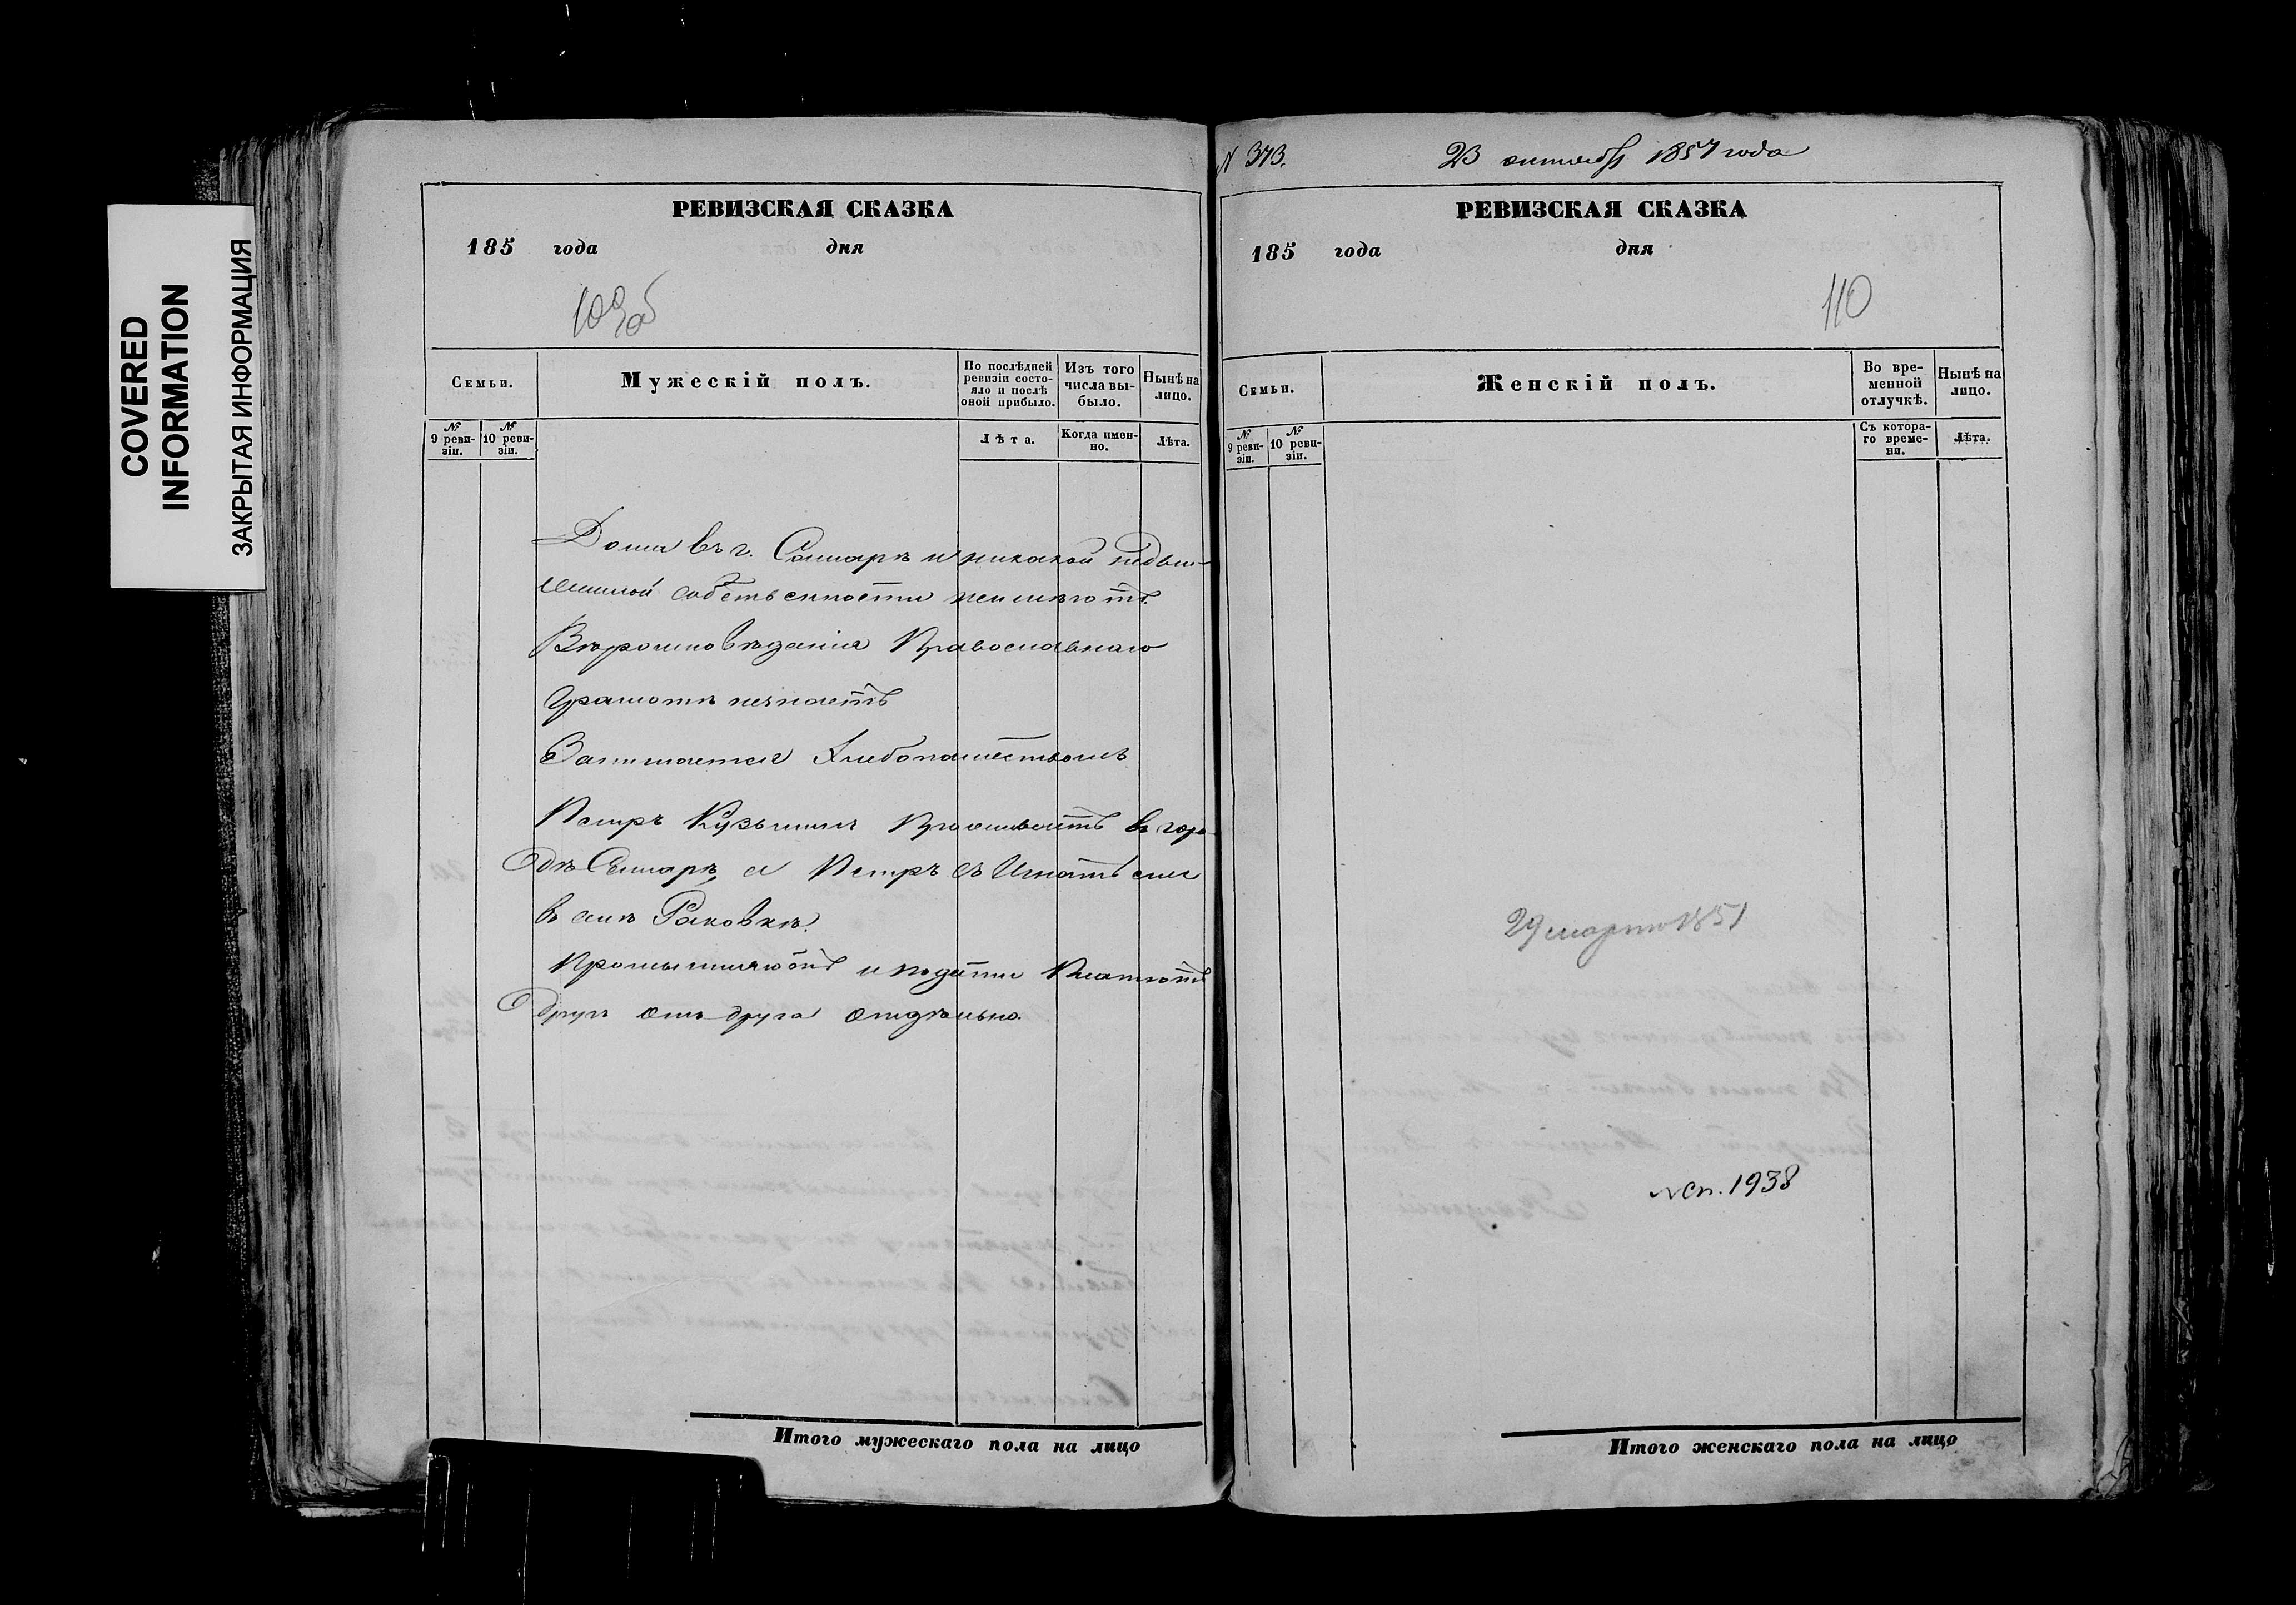 COVERED
INFORMATION
ЗАКРЫТАЯ ИНФОРМАЦИЯ
РЕВИЗСКАЯ СКАЗКА
185 года дня
109об
Семьи.
Мужескій полъ.
По послѣдней
ревизіи состо-
яло и послѣ
оной прибыло.
Изъ того
числа вы-
было.
Нынѣ на
лицо.
№
9 реви-
зіи.
№
10 реви-
зіи.
Лѣта.
Когда имен-
но.
Лѣта.
Дома въ г. Самарѣ и никакой недви-
жимой собственности неимѣютъ
Вѣроисповѣданія Православнаго
Грамотѣ незнаетъ
Занимается Хлебопашествомъ
Петръ Кузьминъ Проживаетъ въ горо-
дѣ Самарѣ, а Петръ съ Игнатьемъ
въ селѣ Раковкѣ.
Промышляютъ и подати Платютъ
Другъ отъ друга отдѣльно.
Итого мужескаго пола на лицо
N 373.
23 октября 1857 года
РЕВИЗСКАЯ СКАЗКА
185 года дня
110
Семьи.
Женскій полъ.
Во вре-
менной
отлучкѣ.
Нынѣ на
лицо.
№
9 реви-
зіи.
№
10 реви-
зіи.
Съ котора-
го време-
ни.
Лѣта.
29 марта 1851
исп. 1938
Итого женскаго пола на лицо